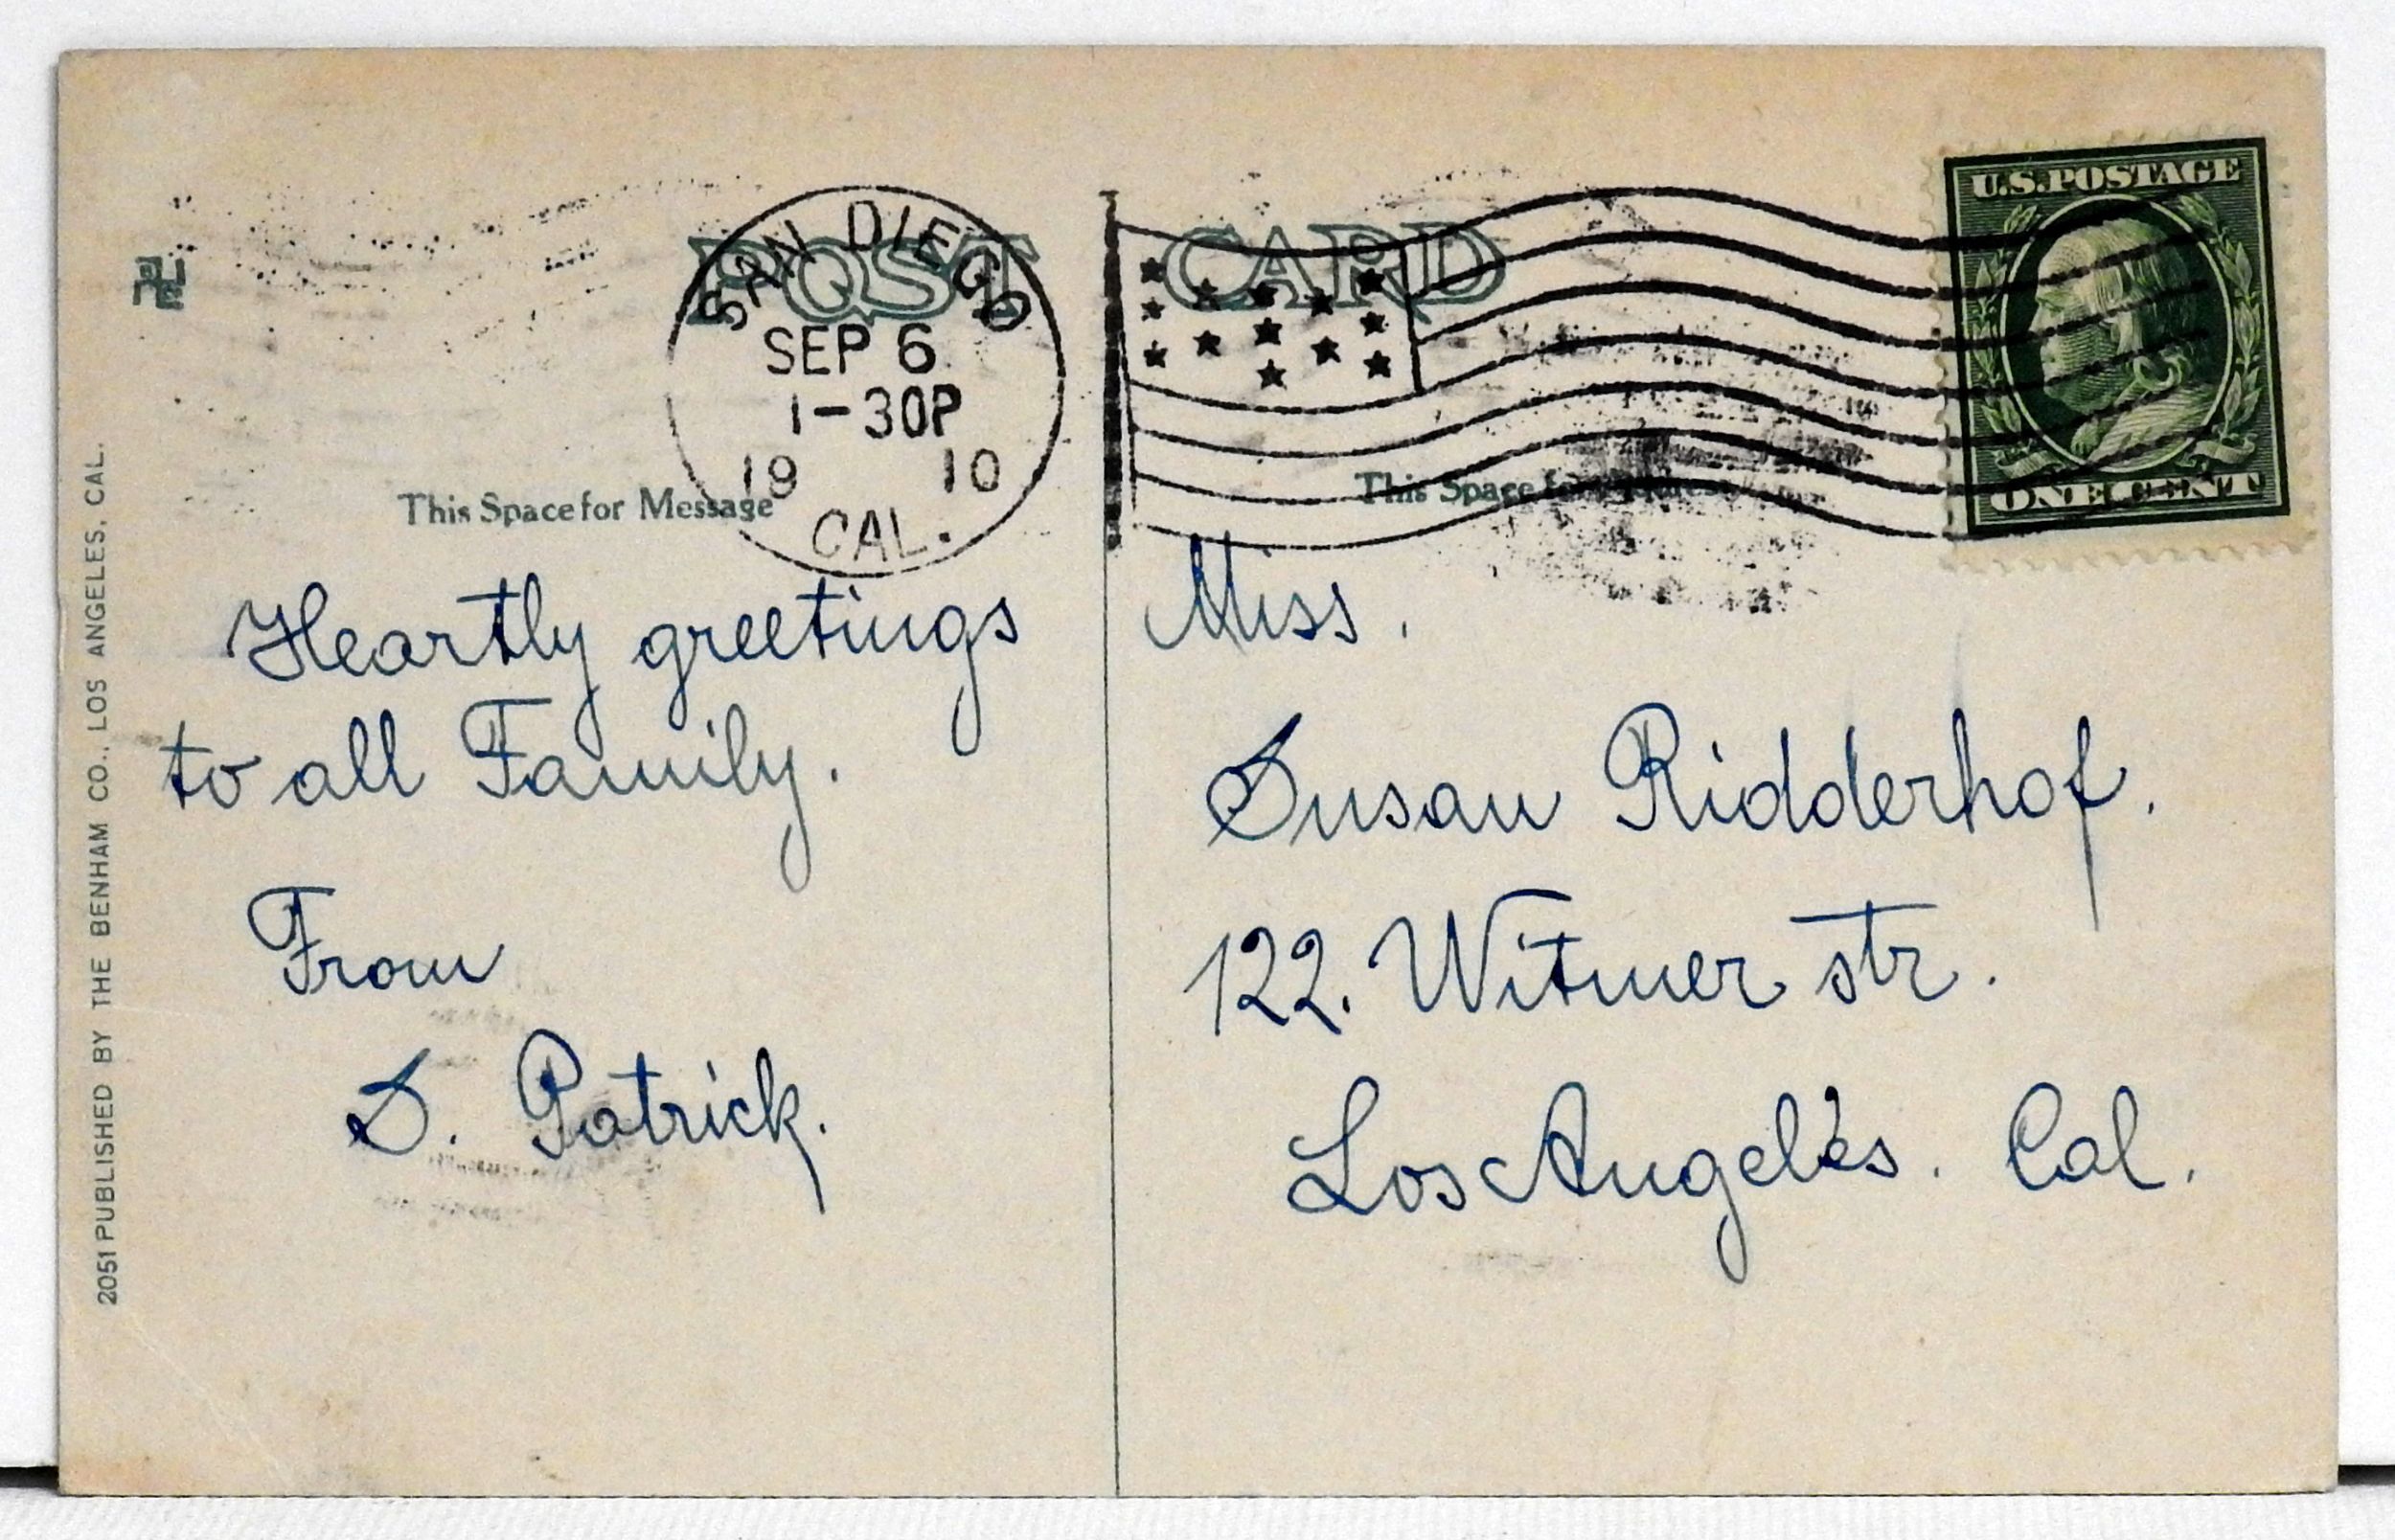 POST CARD
SAN DIEGO
SEP 6
1-30P
19 10
CAL.
U.S. POSTAGE
ONE CENT
This Space for Message
This Space for Address
Heartly greetings
to all Family.
From
S. Patrick.
Miss.
Susan Ridderhof.
122. Witmer str.
Los Angelés. Cal.
2051 PUBLISHED BY THE BENHAM CO., LOS ANGELES, CAL.